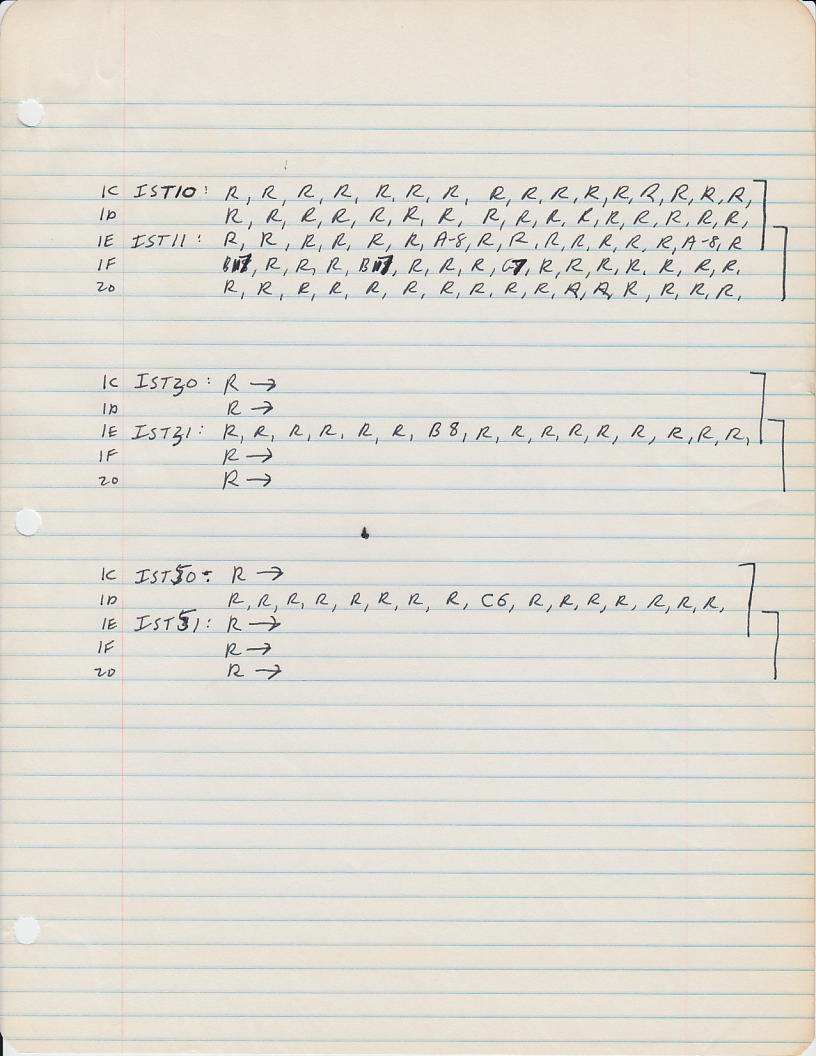 1C IST10: R, R, R, R, R, R, R, R, R, R, R, R, R, R, R, R,
1D R, R, R, R, R, R, R, R, R, R, R, R, R, R, R, R,
1E IST11: R, R, R, R, R, R, A-8, R, R, R, R, R, R, R, A-8, R
1F B7, R, R, R, B7, R, R, R, C7, R, R, R, R, R, R, R,
20 R, R, R, R, R, R, R, R, R, R, R, R, R, R, R, R,
1C IST30: R →
1D R →
1E IST31: R, R, R, R, R, R, B8, R, R, R, R, R, R, R, R, R,
1F R →
20 R →
1C IST50: R →
1D R, R, R, R, R, R, R, R, C6, R, R, R, R, R, R, R,
1E IST51: R →
1F R →
20 R →